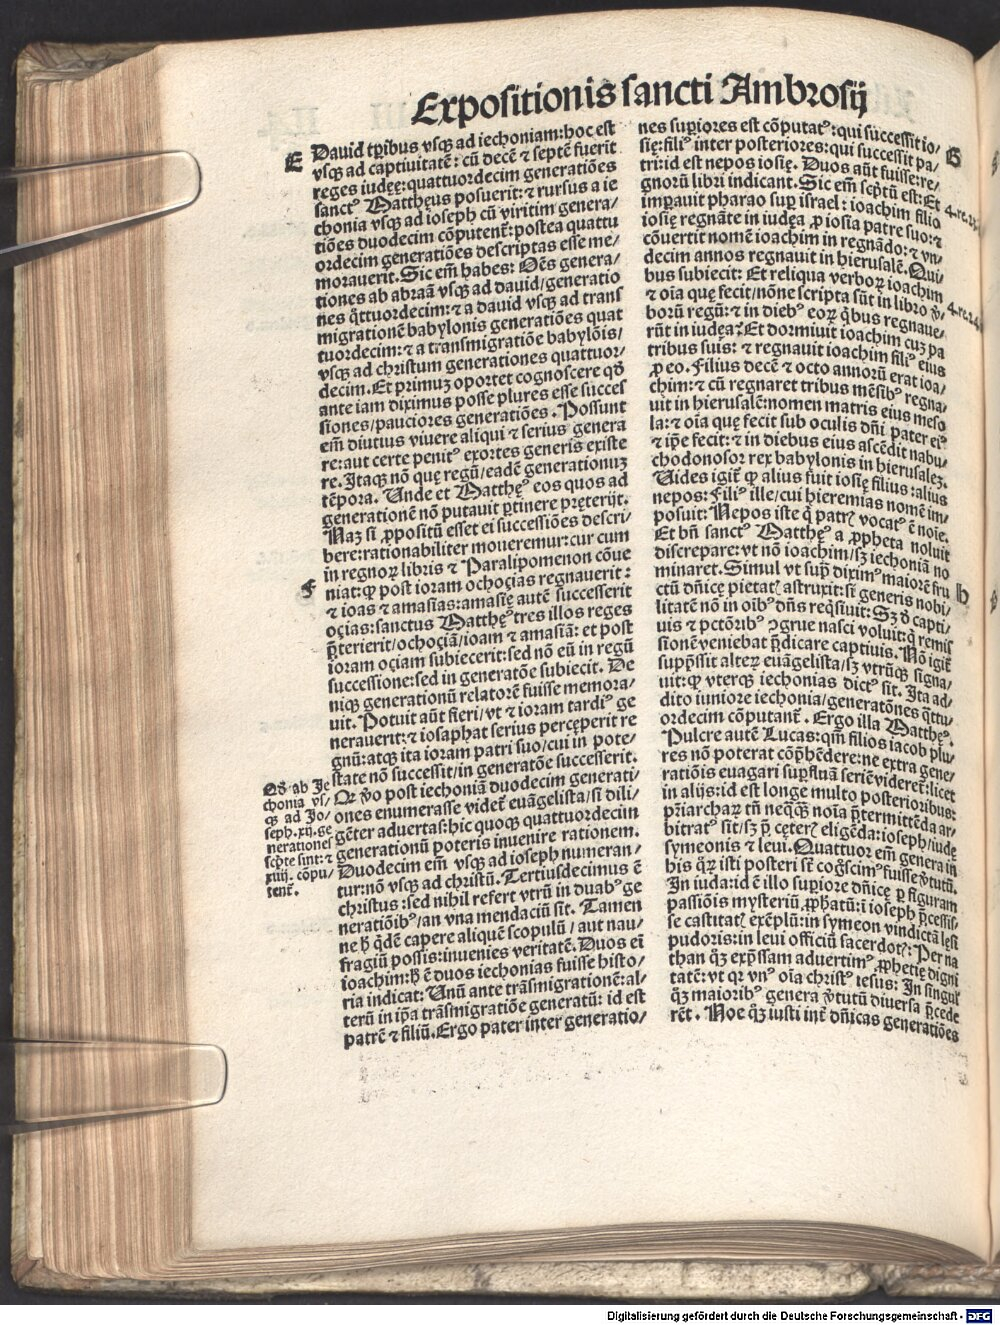 Expositionis sancti Ambrosij
E
David tribus vsq; ad iechoniam: hoc est
vsq; ad captiuitatē: cū decē ⁊ septē fuerit
reges iudęę: quattuordecim generatiōes
sanctꝰ Matthęus posuerit: ⁊ rursus a ie
chonia vsq; ad ioseph cū viritim genera/
tiōes duodecim cōputent̄: postea quattu
ordecim generatiōes descriptas esse me/
morauerit. Sic em̄ habes: Oēs genera/
tiones ab abraā vsq; ad dauid/generatio
nes q̄ttuordecim: ⁊ a dauid vsq; ad trans
migrationē babylonis generatiōes quat
tuordecim: ⁊ a transmigratiōe babylōis/
vsq; ad christum generationes quattuor/
decim. Et primuz oportet cognoscere qd̄
ante iam diximus posse plures esse succes
siones/pauciores generatiōes. Possunt
em̄ diutius viuere aliqui ⁊ serius genera
re: aut certe penitꝰ exortes generis existe
re. Itaq; nō quę regū/eadē generationuz
tēpora. Unde et Matthęꝰ eos quos ad
generationē nō putauit ꝑtinere pręterijt.
Naz si ꝓpositū esset ei successiōes descri/
bere: rationabiliter moueremur: cur cum
in regnoꝝ libris ⁊ Paralipomenon cōue
F
niat: ꝙ post ioram ochoęias regnauerit:
⁊ ioas ⁊ amasias: amasię autē successerit
oęias: sanctus Matthęꝰ tres illos reges
p̄terierit/ochoęiā/ioam ⁊ amasiā: et post
ioram oęiam subiecerit: sed nō eū in regū
successione: sed in generatōe subiecit. De
niq; generationū relatorē fuisse memora/
uit. Potuit aūt fieri/vt ⁊ ioram tardiꝰ ge
nerauerit: ⁊ iosaphat serius percęperit re
gnū: atq; ita ioram patri suo/cui in pote/
state nō successit/in generatōe successerit.
Qd̄ ab Je
chonia vs/
q; ad Jo/
seph .xij. ge
nerationes
scp̄te sint: ⁊
xiiij. cōpu/
tent̄.
Qr v̄o post iechoniā duodecim generati/
ones enumerasse videt̄ euāgelista/si dili/
gēter aduertas: hic quoq; quattuordeciin
generationū poteris inuenire rationem.
Duodecim em̄ vsq; ad ioseph numeran/
tur: nō vsq; ad christū. Tertiusdecimus ē
christus: sed nihil refert vtrū in duabꝰ ge
neratiōibꝰ/an vna mendaciū sit. Tamen
ne h̄ q̄dē capere aliquē scopulū/aut nau/
fragiū possis: inuenies veritatē. Duos ei
ioachim: h̄ ē duos iechonias fuisse histo/
ria indicat: Unū ante trāsmigrationē: al/
terū in ip̄a trāsmigratiōe generatū: id est
patrē ⁊ filiū. Ergo pater inter generatio/
nes supīores est cōputatꝰ: qui successit io/
G
się: filiꝰ inter posteriores: qui successit pa/
tri: id est nepos iosię. Duos aūt fuisse: re/
gnorū libri indicant. Sic em̄ scp̄tū est: Et
4. re. 23.
imꝑauit pharao suꝑ israel: ioachim filio
iosię regnāte in iudęa ꝓ iosia patre suo: ⁊
cōuertit nomē ioachim in regnādo: ⁊ vn/
decim annos regnauit in hierusalē. Qui/
bus subiecit: Et reliqua verboꝝ ioachim
4. re. 24.
⁊ oīa quę fecit/nōne scripta sūt in libro v̄/
borū regū: ⁊ in diebꝰ eoꝝ q̄bus regnaue/
rūt in iudęa? Et dormiuit ioachim cuz pa
tribus suis: ⁊ regnauit ioachim filiꝰ eius
ꝓ eo. Filius decē ⁊ octo annorū erat ioa/
chim: ⁊ cū regnaret tribus mēsibꝰ regna/
uit in hierusalē: nomen matris eius meso
la: ⁊ oīa quę fecit sub oculis dn̄i pater eiꝰ
⁊ ip̄e fecit: ⁊ in diebus eius ascēdit nabu/
chodonosor rex babylonis in hierusalez.
Uides igit̄ ꝙ alius fuit iosię filius: alius
nepos: Filiꝰ ille/cui hieremias nomē im/
posuit: Nepos iste q̄ patrꝭ vocatꝰ ē noīe.
Et bn̄ sanctꝰ Matthęꝰ a ꝓpheta noluit
discrepare: vt nō ioachim/sꝫ iechoniā no
minaret. Simul vt supͣ diximꝰ maiorē fru
h
ctū dn̄icę pietatꝭ astruxit: si generis nobi/
litatē nō in oībꝰ dn̄s reqͥsiuit: Sꝫ d̄ capti/
uis ⁊ pctōribꝰ ꝯgrue nasci voluit: qͥ remis
sionē veniebat p̄dicare captiuis. Nō igit̄
supp̄ssit alteꝝ euāgelista/sꝫ vtrūq; signa/
uit: ꝙ vterq; iechonias dictꝰ sit. Ita ad/
dito iuniore iechonia/generatōnes q̄ttu/
ordecim cōputant̄. Ergo illa Matthęꝰ.
Pulcre autē Lucas: qm̄ filios iacob plu/
res nō poterat cōp̄hēdere: ne extra gene/
ratiōis euagari supfluā seriē videret̄: licet
in alijs: id est longe multo posterioribus:
p̄riarchaꝝ tn̄ neq̄q̄ noīa p̄termittēda ar/
bitratꝰ sit/sꝫ p̄ cęterꝭ eligēda: ioseph/iudę
symeonis ⁊ leui. Quattuor em̄ genera in
his qͣꝝ isti posteri sr̄ cogͦscimꝰ fuisse v̄tutū.
In iuda: id ē illo supiore dn̄icę ꝑ figuram
passiōis mysteriū ꝓphatū: ī ioseph p̄cessis/
se castitatꝭ exēplū: in symeon vindictā lęsi
pudoris: in leui officiū sacerdotꝭ: Per na
than qͦꝫ exp̄ssam aduertimꝰ ꝓphetię digni
tatē: vt qr vnꝰ oīa christꝰ iesus: In singuꝉ
qͦꝫ maioribꝰ genera v̄tutū diuersa p̄cede
rēt. Noe qͦꝫ iusti int̄ dn̄icas generatiōes
Digitalisierung gefördert durch die Deutsche Forschungsgemeinschaft - DFG